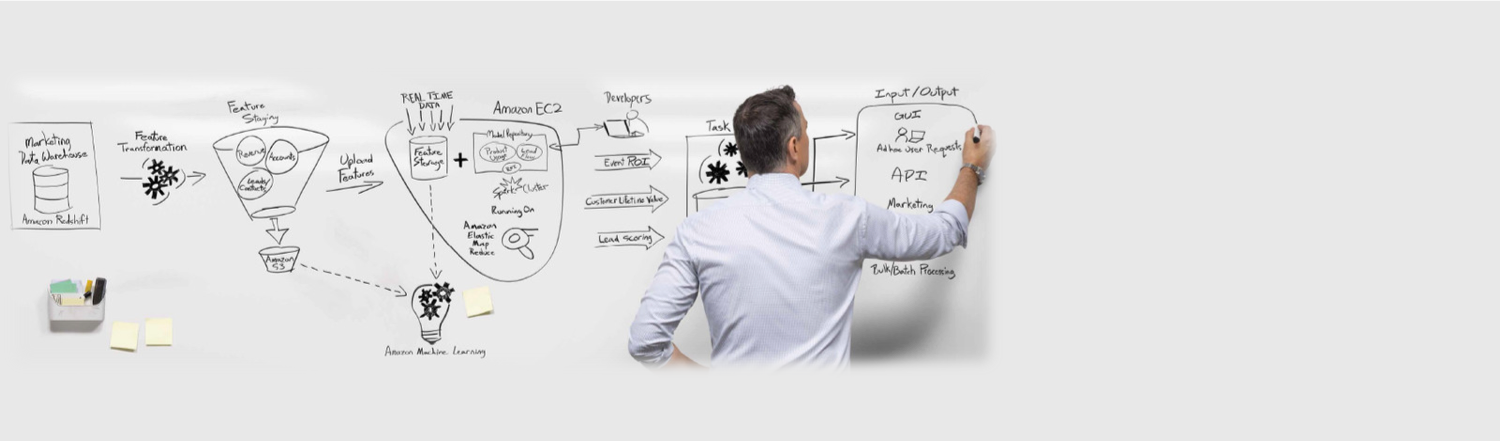 Marketing
Data Warehouse
Amazon Redshift
Feature
Transformation
Feature
Staging
Revenue
Accounts
Leads/
Contacts
Amazon
S3
Upload
Features
REAL TIME
DATA
Feature
Storage
+
Amazon EC2
Model Repository
Product
Spark Cluster
Running On
Amazon
Elastic
Map
Reduce
Amazon Machine Learning
Developers
Event ROI
Customer Lifetime Value
Lead Scoring
Task
Input/Output
GUI
Ad hoc User Requests
API
Marketing
Bulk/Batch Processing